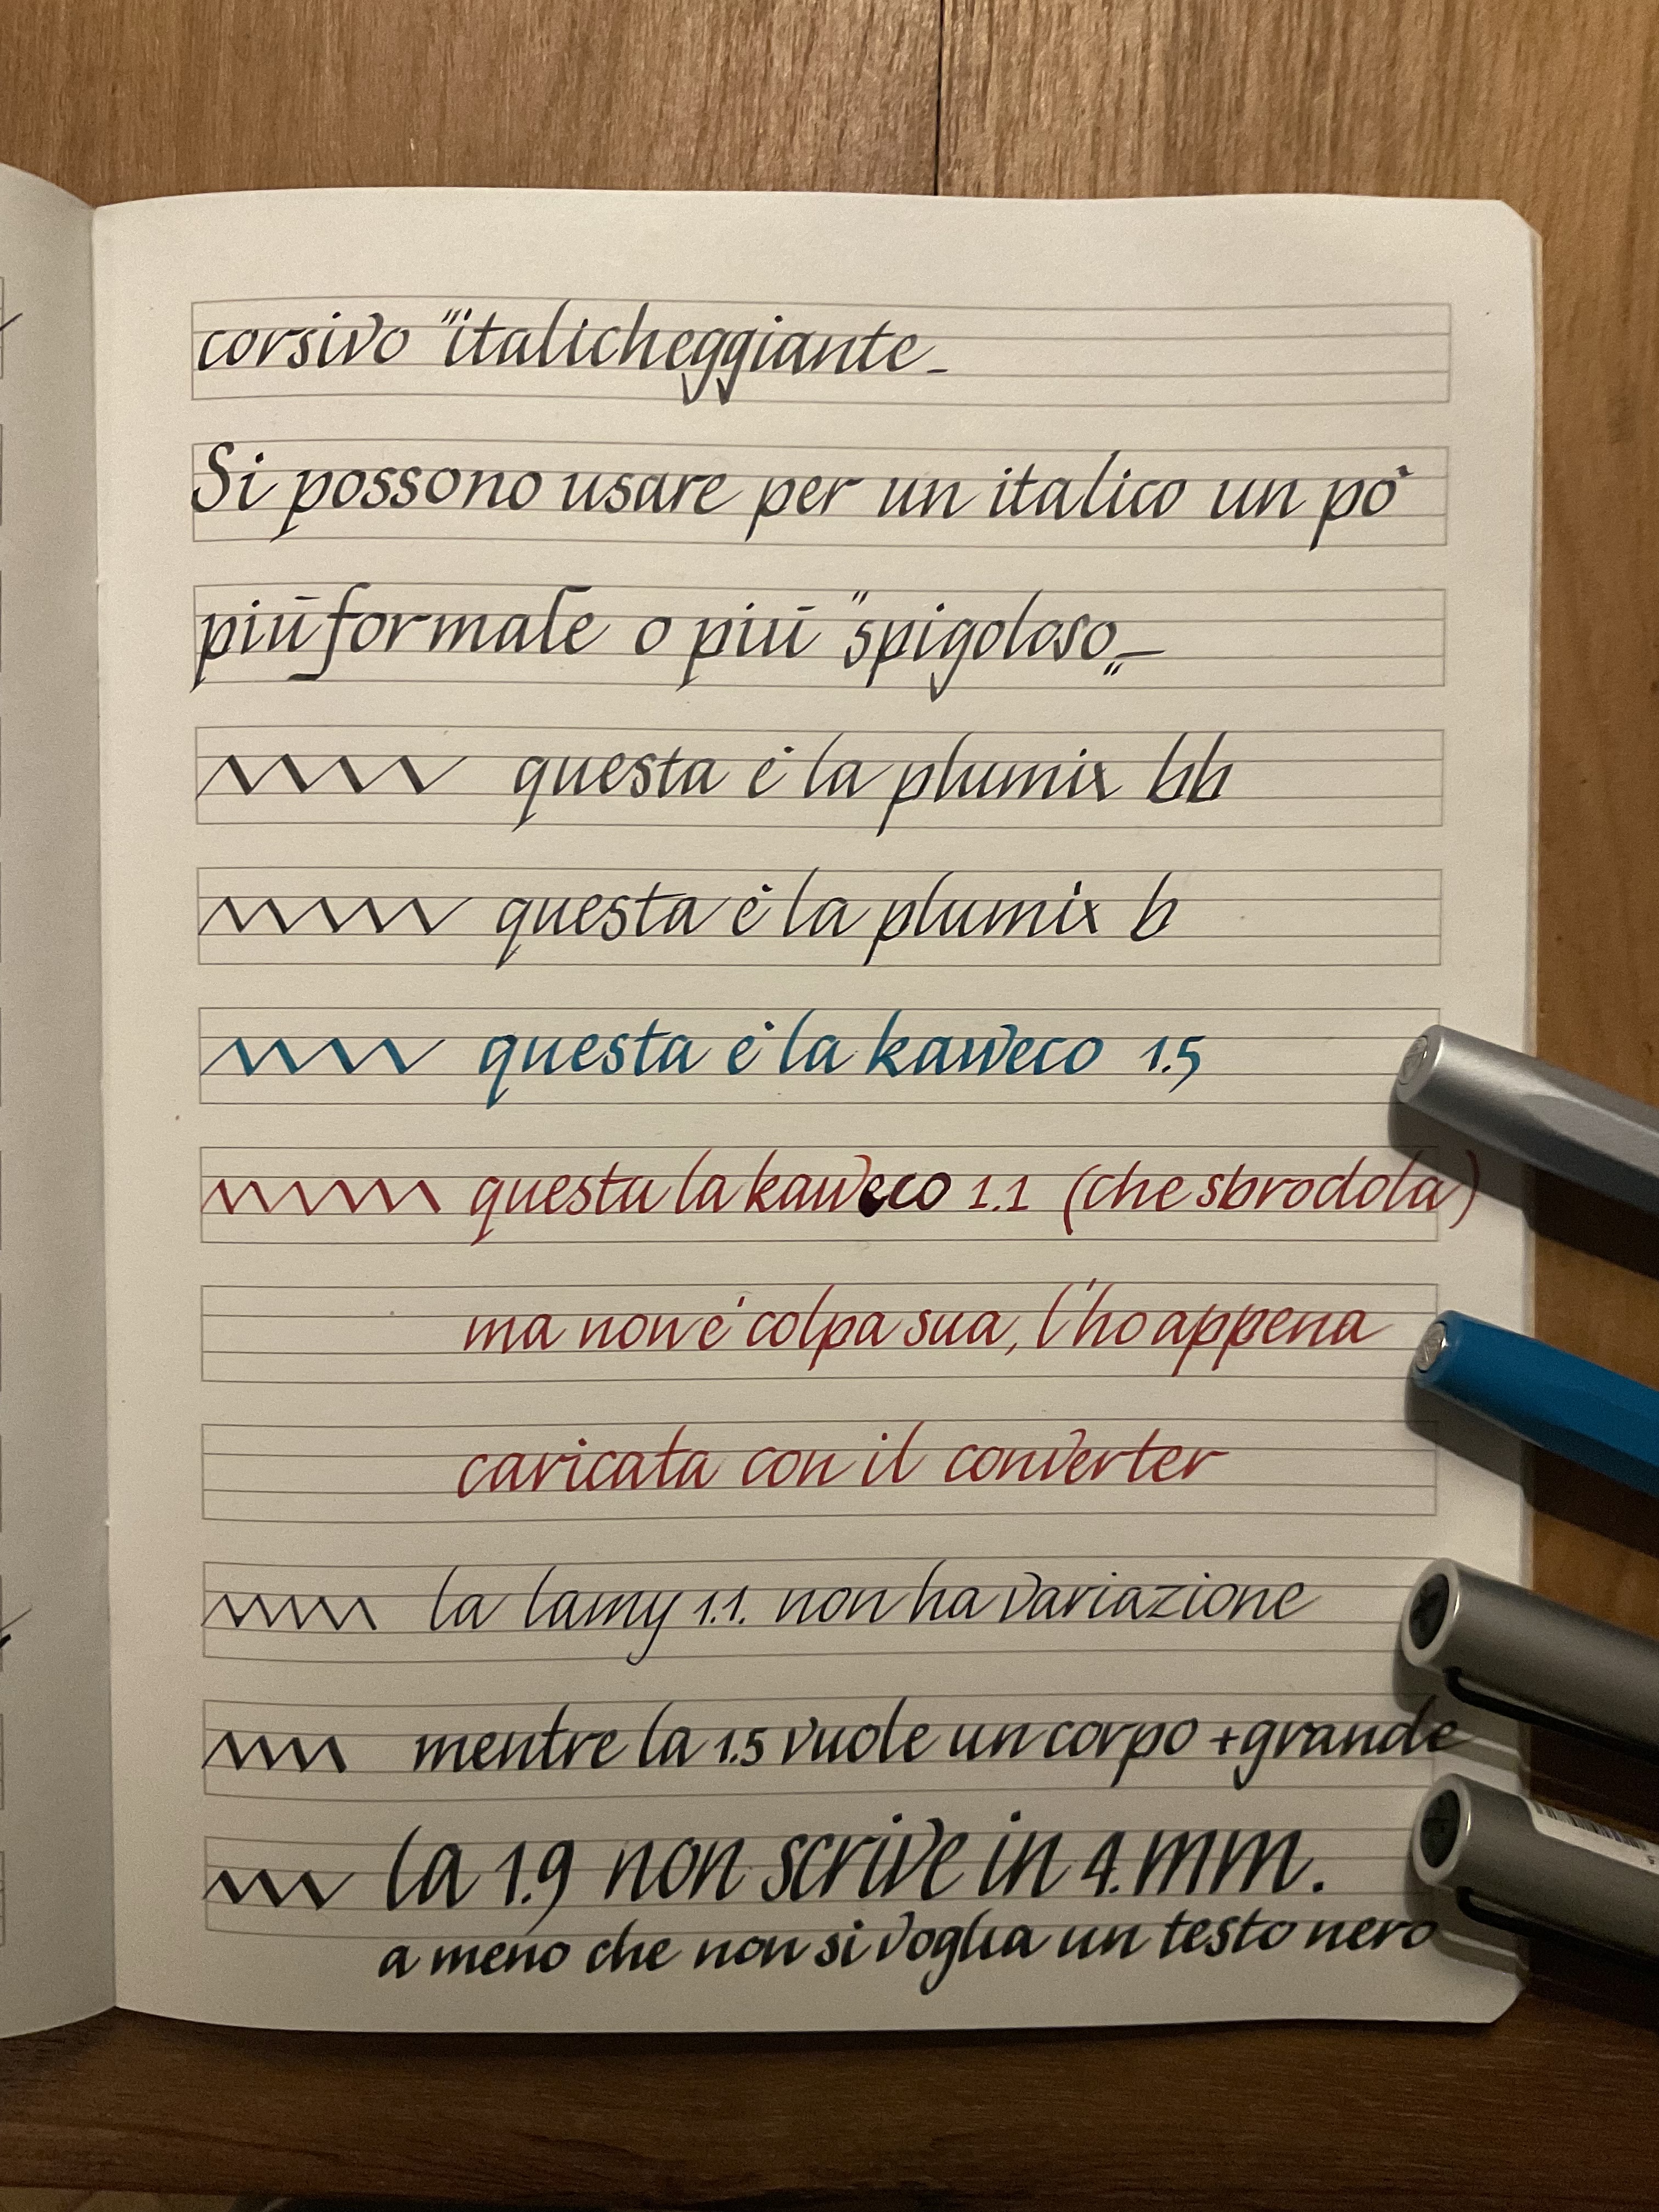 corsivo "italicheggiante_
Si possono usare per un italico un pò
più formale o più "spigoloso„—
questa è la plumix bb
questa è la plumix b
questa è la kaweco 1.5
questa la kaweco 1.1 (che sbrodola)
ma non è colpa sua, l'ho appena
caricata con il converter
la lamy 1.1. non ha variazione
mentre la 1.5 vuole un corpo + grande
la 1.9 non scrive in 4.mm.
a meno che non si voglia un testo nero